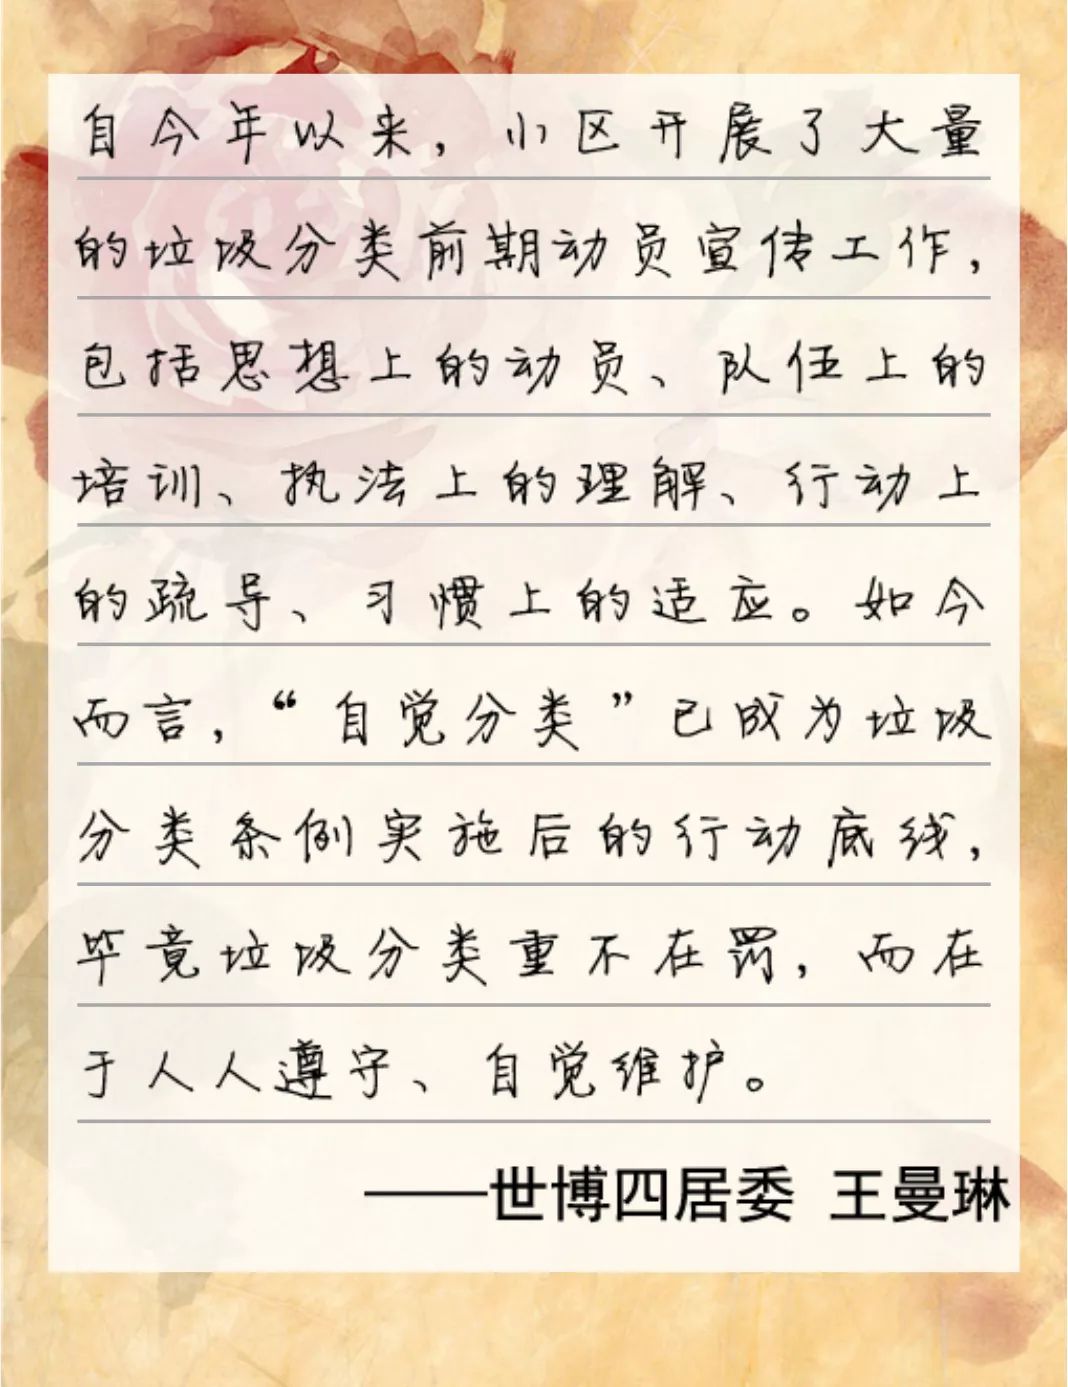 自今年以来，小区开展了大量
的垃圾分类前期动员宣传工作，
包括思想上的动员、队伍上的
培训、执法上的理解、行动上
的疏导、习惯上的适应。如今
而言，“自觉分类”已成为垃圾
分类条例实施后的行动底线，
毕竟垃圾分类重不在罚，而在
于人人遵守、自觉维护。
——世博四居委 王曼琳